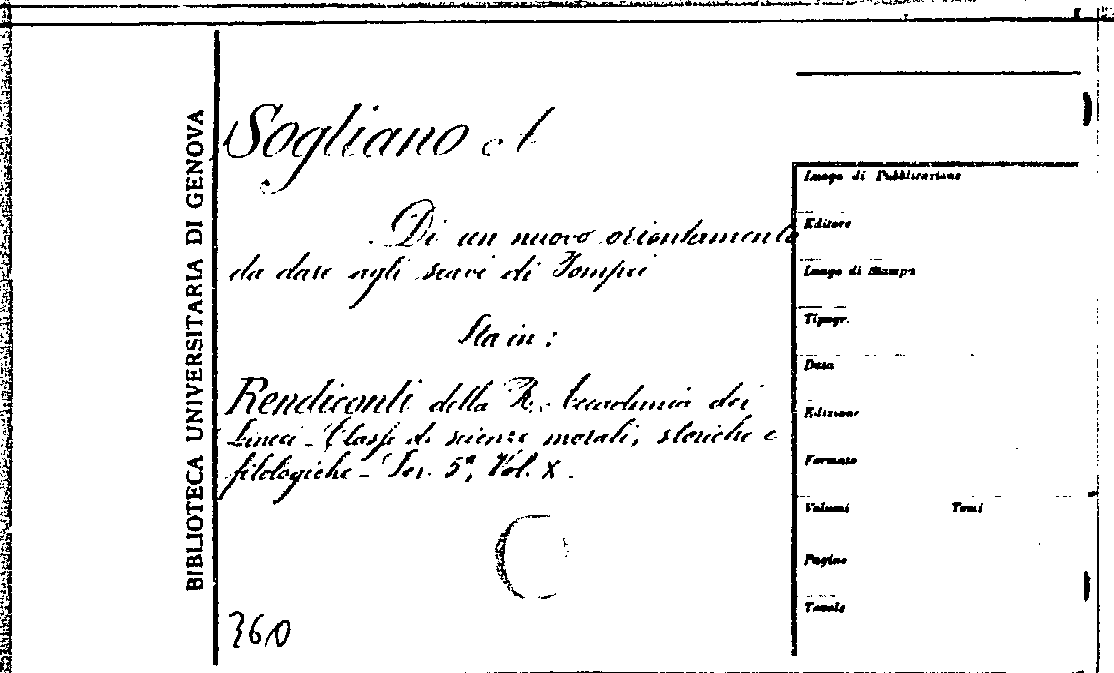 BIBLIOTECA UNIVERSITARIA DI GENOVA
Sogliano A
Di un nuovo orientamento
da dare agli scavi di Pompei
Sta in :
Rendiconti della R. Accademia dei
Lincei - Classe di scienze morali, storiche e
filologiche - Ser. 5ª, Vol. X.
360
Luogo di Pubblicazione
Editore
Luogo di Stampa
Tipogr.
Data
Edizione
Formato
Volumi Tomi
Pagine
Tavole